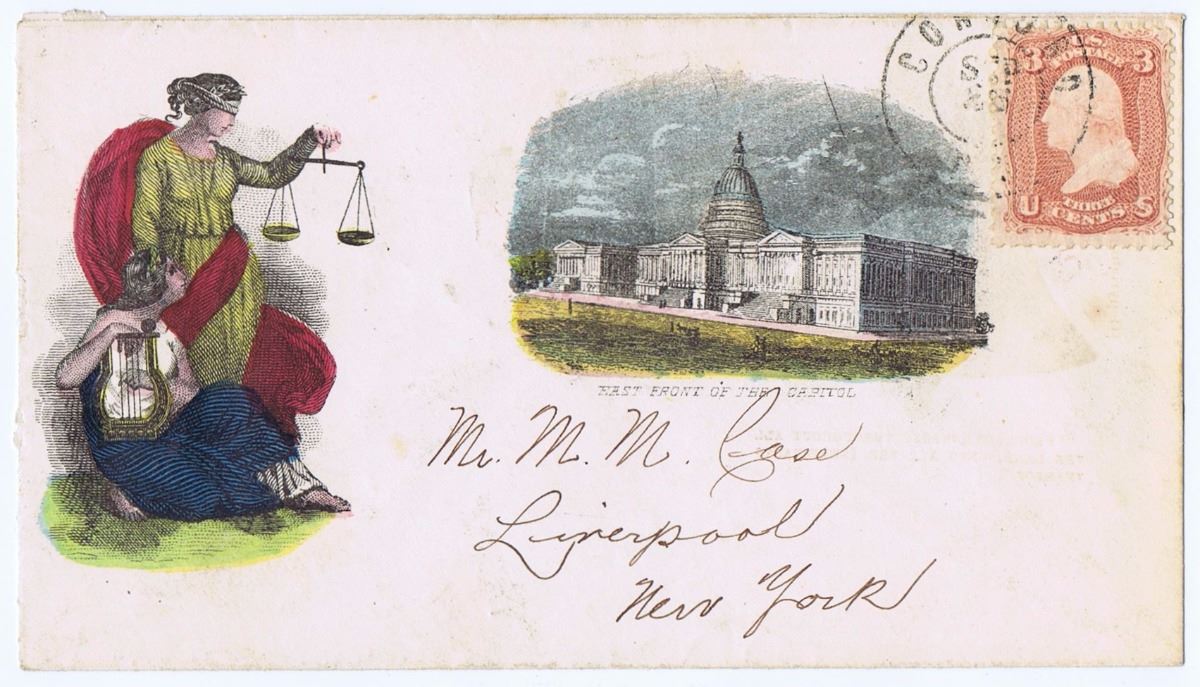 3 U.S. 3
POSTAGE
U THREE S
CENTS
EAST FRONT OF THE CAPITOL
Mr. M. M. Case
Liverpool
New York